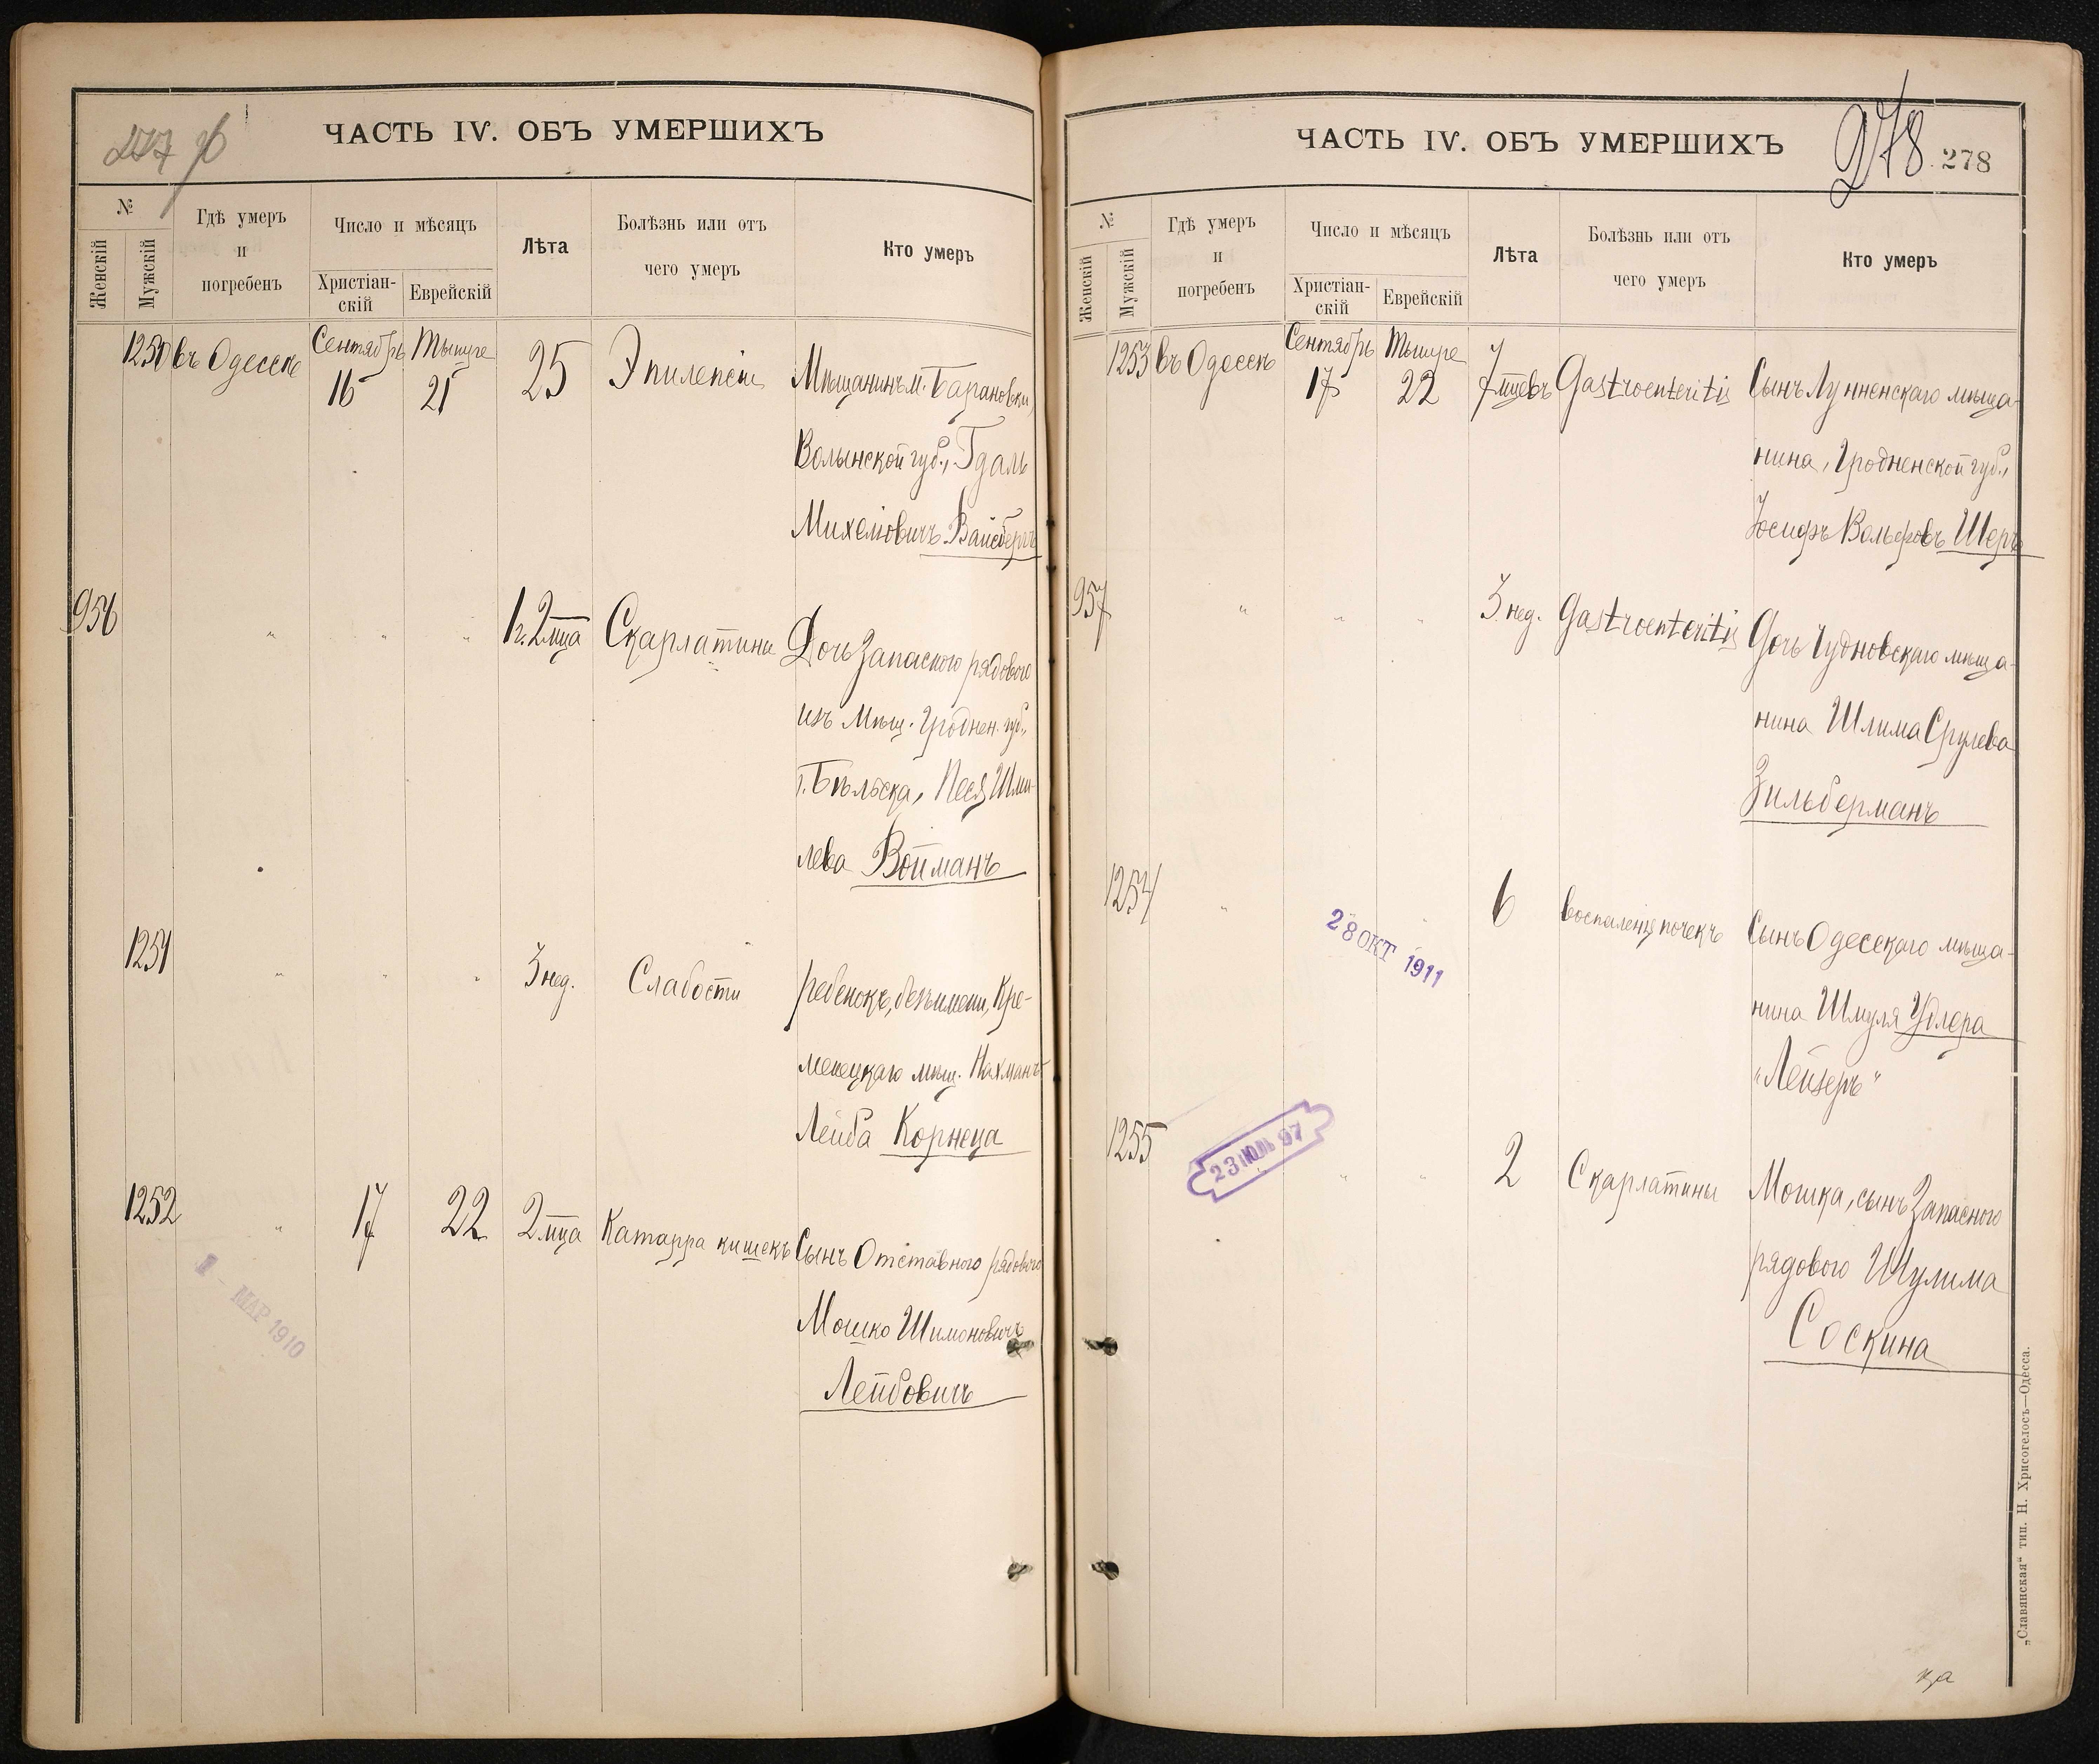 277 об
ЧАСТЬ IV. ОБЪ УМЕРШИХЪ
№
Женскій
Мужскій
Гдѣ умеръ
и
погребенъ
Число и мѣсяцъ
Христіан-
скій
Еврейскій
Лѣта
Болѣзнь или отъ
чего умеръ
Кто умеръ
1250 въ Одессѣ Сентябрь 16 Тышре 21 25 Эпилепсіи Мѣщанинъ м. Барановки,
Волынской губ., Гдаль
Михелювичъ Вайсбергъ
956 " " " 1 г. 2 мца Скарлатины Дочь Запасного рядового
изъ мѣщ. Гроднен. губ.,
г. Бѣльска, Песя Шми-
лева Войманъ
1251 " " " 3 нед. Слабости ребенокъ, безъ имени, Кре-
менецкаго мѣщ. Нахманъ
Лейба Корнеца
1252 " 17 22 2 мца Катарра кишекъ Сынъ Отставного рядового
Мошко Шимоновичъ
Лейбовичъ
1 - МАР 1910
278
ЧАСТЬ IV. ОБЪ УМЕРШИХЪ
278
№
Женскій
Мужскій
Гдѣ умеръ
и
погребенъ
Число и мѣсяцъ
Христіан-
скій
Еврейскій
Лѣта
Болѣзнь или отъ
чего умеръ
Кто умеръ
1253 въ Одессѣ Сентябрь 17 Тышре 22 7 мцевъ Gastroenteritis Сынъ Лунненскаго мѣща-
нина, Гродненской губ.,
Іосифъ Вольфовъ Шеръ
957 " " " 3 нед. Gastroenteritis Дочь Чудновскаго мѣща-
нина Шлима Срулева
Зильберманъ
1254 " " " 6 воспаленія почекъ Сынъ Одесскаго мѣща-
нина Шмуля Удлера
"Лейзеръ"
28 ОКТ 1911
1255 " " " 2 Скарлатины Мошка, сынъ Запасного
рядового Шулима
Соскина
23 ІЮЛЬ 97
„Славянская“ тип. Н. Хрисогелосъ—Одесса.